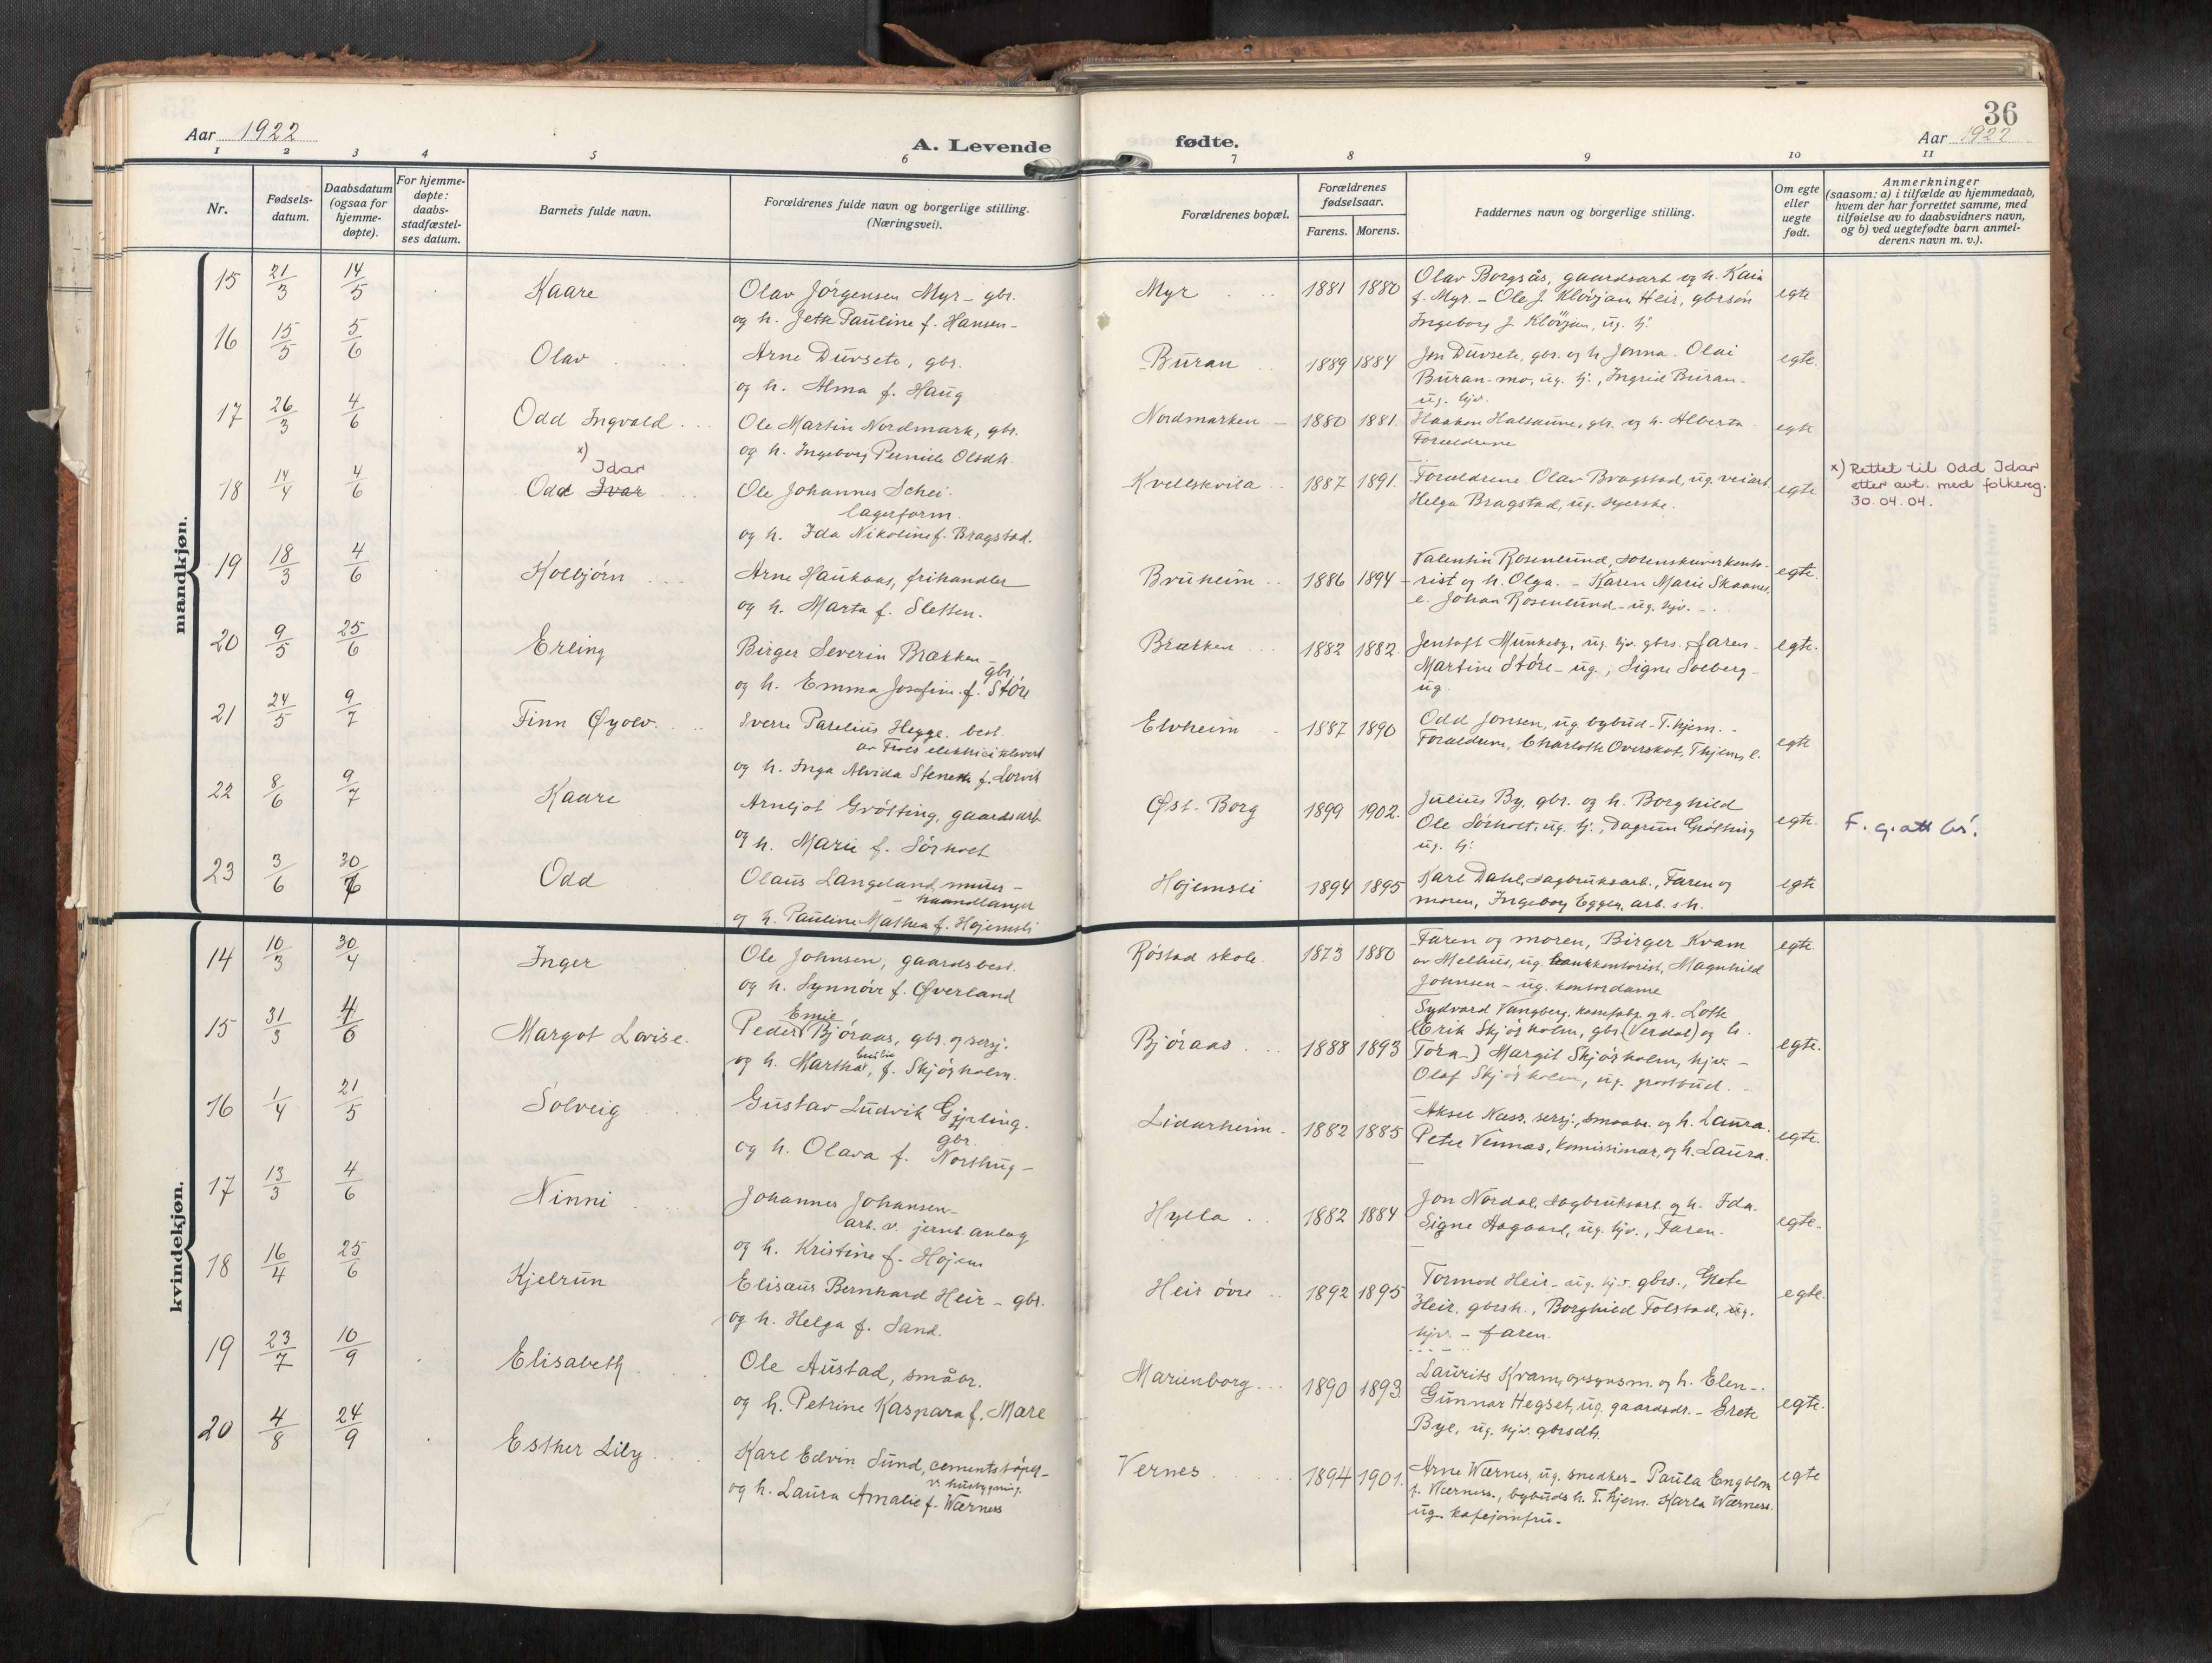 36
Aar 1922
A. Levende
fødte.
Aar 1922
1 2 3 4 5 6 7 8 9 10 11
Nr.
Fødsels-
datum.
Daabsdatum
(ogsaa for
hjemme-
døpte).
For hjemme-
døpte:
daabs-
stadfæstel-
ses datum.
Barnets fulde navn.
Forældrenes fulde navn og borgerlige stilling.
(Næringsvei).
Forældrenes bopæl.
Forældrenes
fødselsaar.
Farens. Morens.
Faddernes navn og borgerlige stilling.
Om egte
eller
uegte
født.
Anmerkninger
(saasom: a) i tilfælde av hjemmedaab,
hvem der har forrettet samme, med
tilføielse av to daabsvidners navn,
og b) ved uegtefødte barn anmel-
derens navn m. v.).
mandkjøn.
15 21/3 14/5 Kaare
Olav Jörgensen Myr - gbr.
og h. Pauline f. Hansen -
Myr 1881 1880
Olav Borgsås, gaardsarb og h. Kaia
f. Myr. - Ole J. Klövjan Heir, gbrsön
Ingeborg J. Klövjan, ug. tj.
egte
16 15/5 5/6 Olav
Arne Duvsete, gbr.
og h. Alma f. Haug
Buran 1889 1884
Jon Duvsete, gbr. og h. Jonna. Olai
Buran-mo, ug. tj., Ingrid Buran -
ug. hjv.
egte.
17 26/3 4/6 Odd Ingvald
Ole Martin Nordmark, gbr.
og h. Ingeborg Pernille Olsdh.
Nordmarken 1880 1881.
Haakon Halsaune, gbr. og h. Alberta
Forældrene
egte
18 14/4 4/6 x) Idar
Odd Ivar
Ole Johannes Schei
lagerform.
og h. Ida Nikoline f. Bragstad.
Kvelskvila 1887 1891.
Forældrene Olav Bragstad, ug. veiarb
Helga Bragstad, ug. syerske.
egte
x) Rettet til Odd Idar
etter avt. med folkereg.
30.04.04.
19 18/3 4/6 Kolbjörn
Arne Haukaas, frihandler
og h. Marta f. Sletten.
Bruheim 1886 1894
Valentin Rosenlund, konto-
rist og h. Olga. - Karen Marie Skaanes,
e. Johan Rosenlund - ug. hjv. -
egte.
20 9/5 25/6 Erling
Birger Severin Brækken -
gbr,
og h. Emma Josefine f. Störe
Brækken 1882 1882.
Jentoft Munkeby, ug. hjv. gbrs., Faren -
Martine Störe - ug., Signe Solberg -
ug.
egte.
21 24/5 9/7 Finn Øyolv
Sverre Parelius Hegge. best.
av
og h. Inga Alvida f. Lorvik
Elvheim 1887 1890
Odd Jonsen, ug bybud - T.hjem. -
Forældrene, Charlotte Overskot, Thjem, e.
egte
22 8/6 9/7 Kaare
Arnljot Grötting, gaardsarb
og h. Marie f. Sörholt
Øst-Borg 1899 1902.
Julius By, gbr. og h. Borghild
Ole Sörholt, ug. tj., Dagrun Grötting
ug. tj.
egte.
F. g. att
23 3/6 30/7 Odd
Olaus Langeland, murer -
- haandlanger
og h. Pauline Mathea f. Højemsli
Højemsli 1894 1895
Karl Dahl, sagbruksarb., Faren og
moren, Ingeborg Eggen, arb. s h.
egte
kvindekjøn.
14 10/3 30/4 Inger
Ole Johnsen, gaardsbest.
og h. Synnöve f. Øverland
Röstad skole. 1873 1880
Faren og moren, Birger Kvam
av Melhus, ug. bankkontorist, Magnhild
Johnsen - ug. kontordame
egte.
15 31/3 4/6 Margot Lovise.
Emie
Peder Björaas, gbr. og sersj.
og h. Martha, f. Skjörholm.
Björaas 1888 1893
Sydvard Vangberg, og h. Lotte
(Erik Skjörholm, gbr (Verdal) og h.
Tora -) Margit Skjörholm, hjv. -
Olaf Skjörholm, ug. postbud. -
egte.
16 1/4 21/5 Solveig
Gustav Ludvik Gipling.
gbr.
og h. Olava f. Northug -
Lidarheim 1882 1885
Aksel Næss, sersj., smaabr. og h. Laura.
Peter Vennæs, komissionær, og h. Laura.
egte.
17 13/3 4/6 Ninni
Johannes Johansen -
arb. v. jernb. anlæg
og h. Kristine f. Højem
Hylla 1882 1884
Jon Nordal, sagbruksarb. og h. Ida.
Signe Aagaard, ug. hjv., Faren.
egte.
18 16/4 25/6 Kjelrun
Elisæus Bernhard Heir - gbr.
og h. Helga f. Sand.
Heir övre 1892 1895
Tormod Heir - ug. hjv. gbrs., Grete
Heir, gbrsh., Borghild Folstad, ug.
hjv. - faren.
egte.
19 23/7 10/9 Elisabeth
Ole Austad, småbr.
og h. Petrine Kaspara f. Mære
Marienborg 1890 1893
Laurits Kvam, opsynsm. og h. Elen -
Gunnar Hegset, ug. gaardsdr. - Grete
Bye, ug. hjv. gbrsdt.
egte.
20 4/8 24/9 Esther Lily
Karl Edvin Sund, cementstöper -
v. husbygning.
og h. Laura Amalie f. Wærness
Vernes 1894 1901.
Arne Wærnes, ug. snedker - Paula Engblom
f. Værness., bybuds h. T.hjem. Karla Wærness.
ug. kafejomfru -
egte